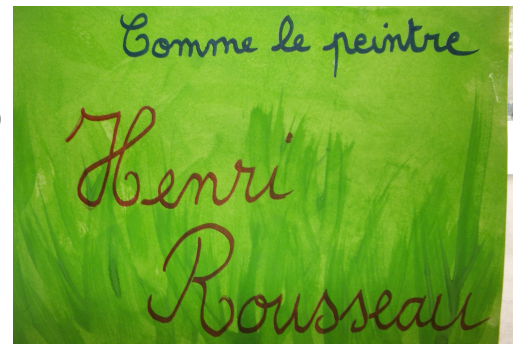 Comme le peintre
Henri
Rousseau